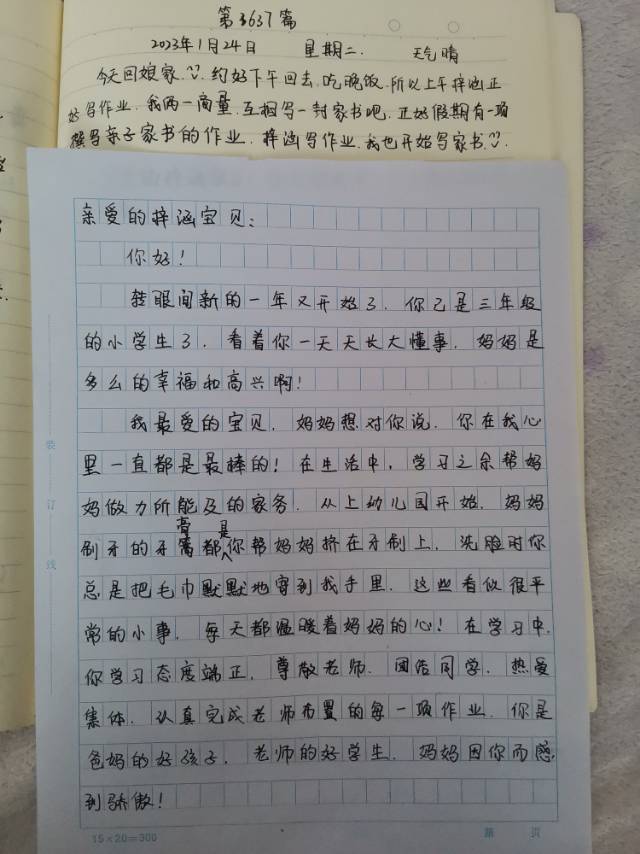 第3637篇
2023年1月24日 星期二. 天气晴
今天回娘家. 约好下午回去.吃晚饭.所以上午梓涵正
好写作业.我两一商量.互相写一封家书吧.正好假期有一项
撰写亲子家书的作业.梓涵写作业.我也开始写家书.
亲爱的梓涵宝贝：
你好！
转眼间新的一年又开始了.你己是三年级
的小学生了.看着你一天天长大懂事.妈妈是
多么的幸福和高兴啊！
我最爱的宝贝.妈妈想对你说.你在我心
里一直都是最棒的！在生活中.学习之余帮妈
妈做力所能及的家务.从上幼儿园开始.妈妈
刷牙的牙膏都是你帮妈妈挤在牙刷上.洗脸时你
总是把毛巾默默地寄到我手里.这些看似很平
常的小事.每天都温暖着妈妈的心！在学习中.
你学习态度端正.尊敬老师.团结同学.热爱
集体.认真完成老师布置的每一项作业.你是
爸妈的好孩子.老师的好学生.妈妈因你而感
到骄傲！
装
订
线
15×20=300
第 页